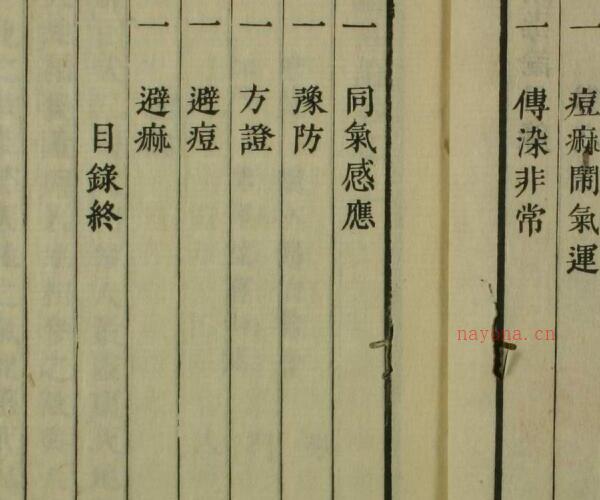 一 痘痲關氣運
一 傳染非常
一 同氣感應
一 豫防
一 方證
一 避痘
一 避痲
目錄終
nayona.cn